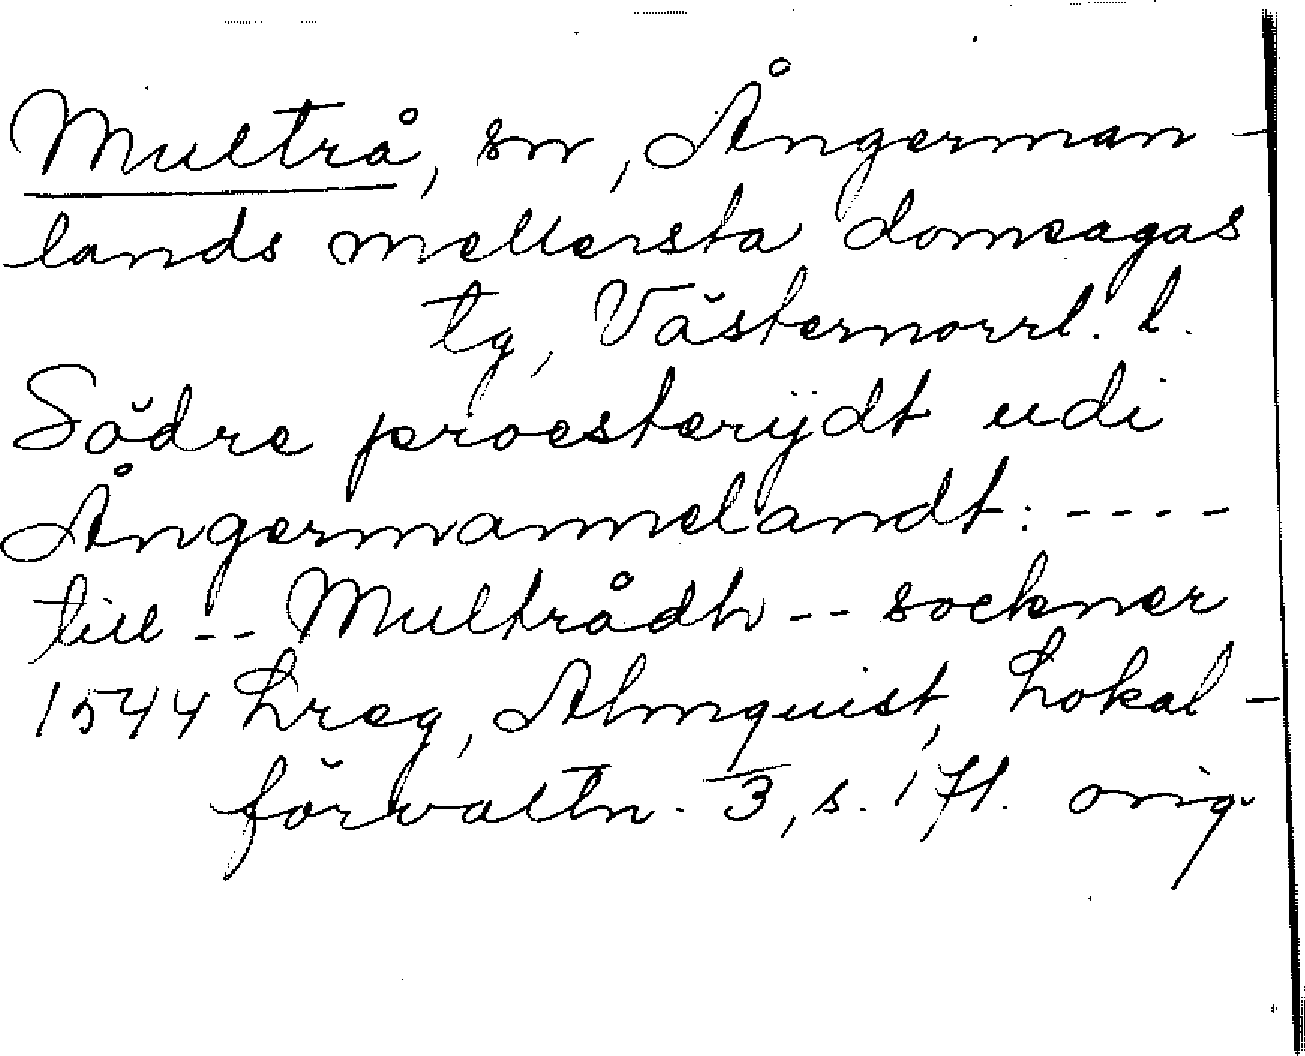 Multrå, sn, Ångerman-
lands mellersta domsagas
tg, Västernorrl. l.
Södre proesterydt udi
Ångermannelandt: ----
till -- Multrådh -- sockner
1544 Lreg, Almquist, Lokal-
förvaltn. 3, s. 171. orig.